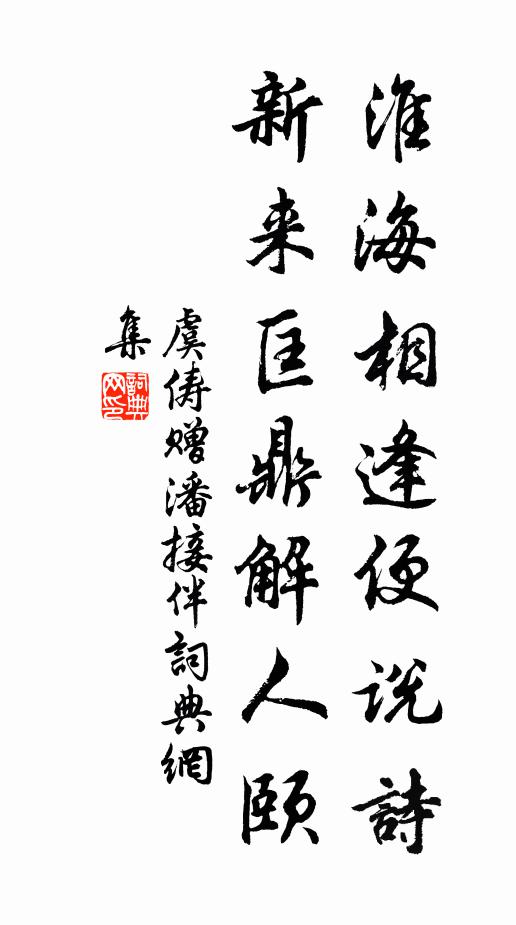 淮海相逢便说詩
新来匡鼎解人頤
虞俦赠潘接伴詞典網
集
詞典网印